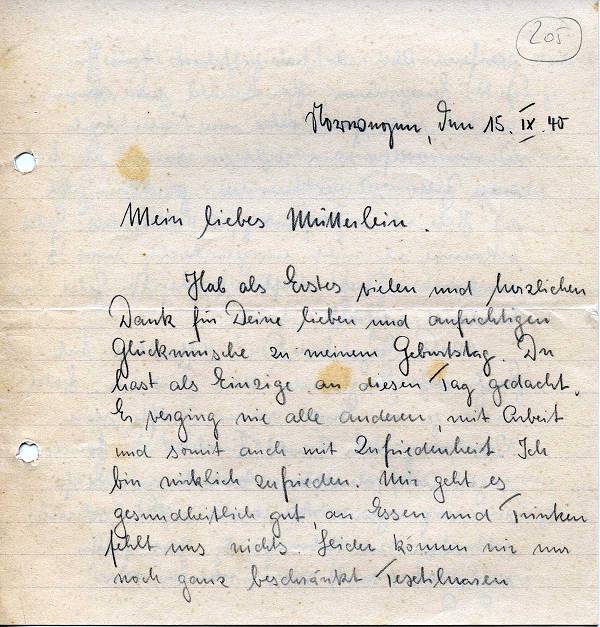 205
den 15. IX. 40
Mein liebes Mütterlein.
Hab als Erstes vielen und herzlichen
Dank für Deine lieben und aufrichtigen
Glückwünsche zu meinem Geburtstag. Du
hast als Einzige an diesen Tag gedacht.
Er verging wie alle anderen, mit Arbeit
und somit auch mit Zufriedenheit. Ich
bin wirklich zufrieden. Mir geht es
gesundheitlich gut, an Essen und Trinken
fehlt uns nichts. Leider können wir nur
noch ganz beschränkt Textilwaren